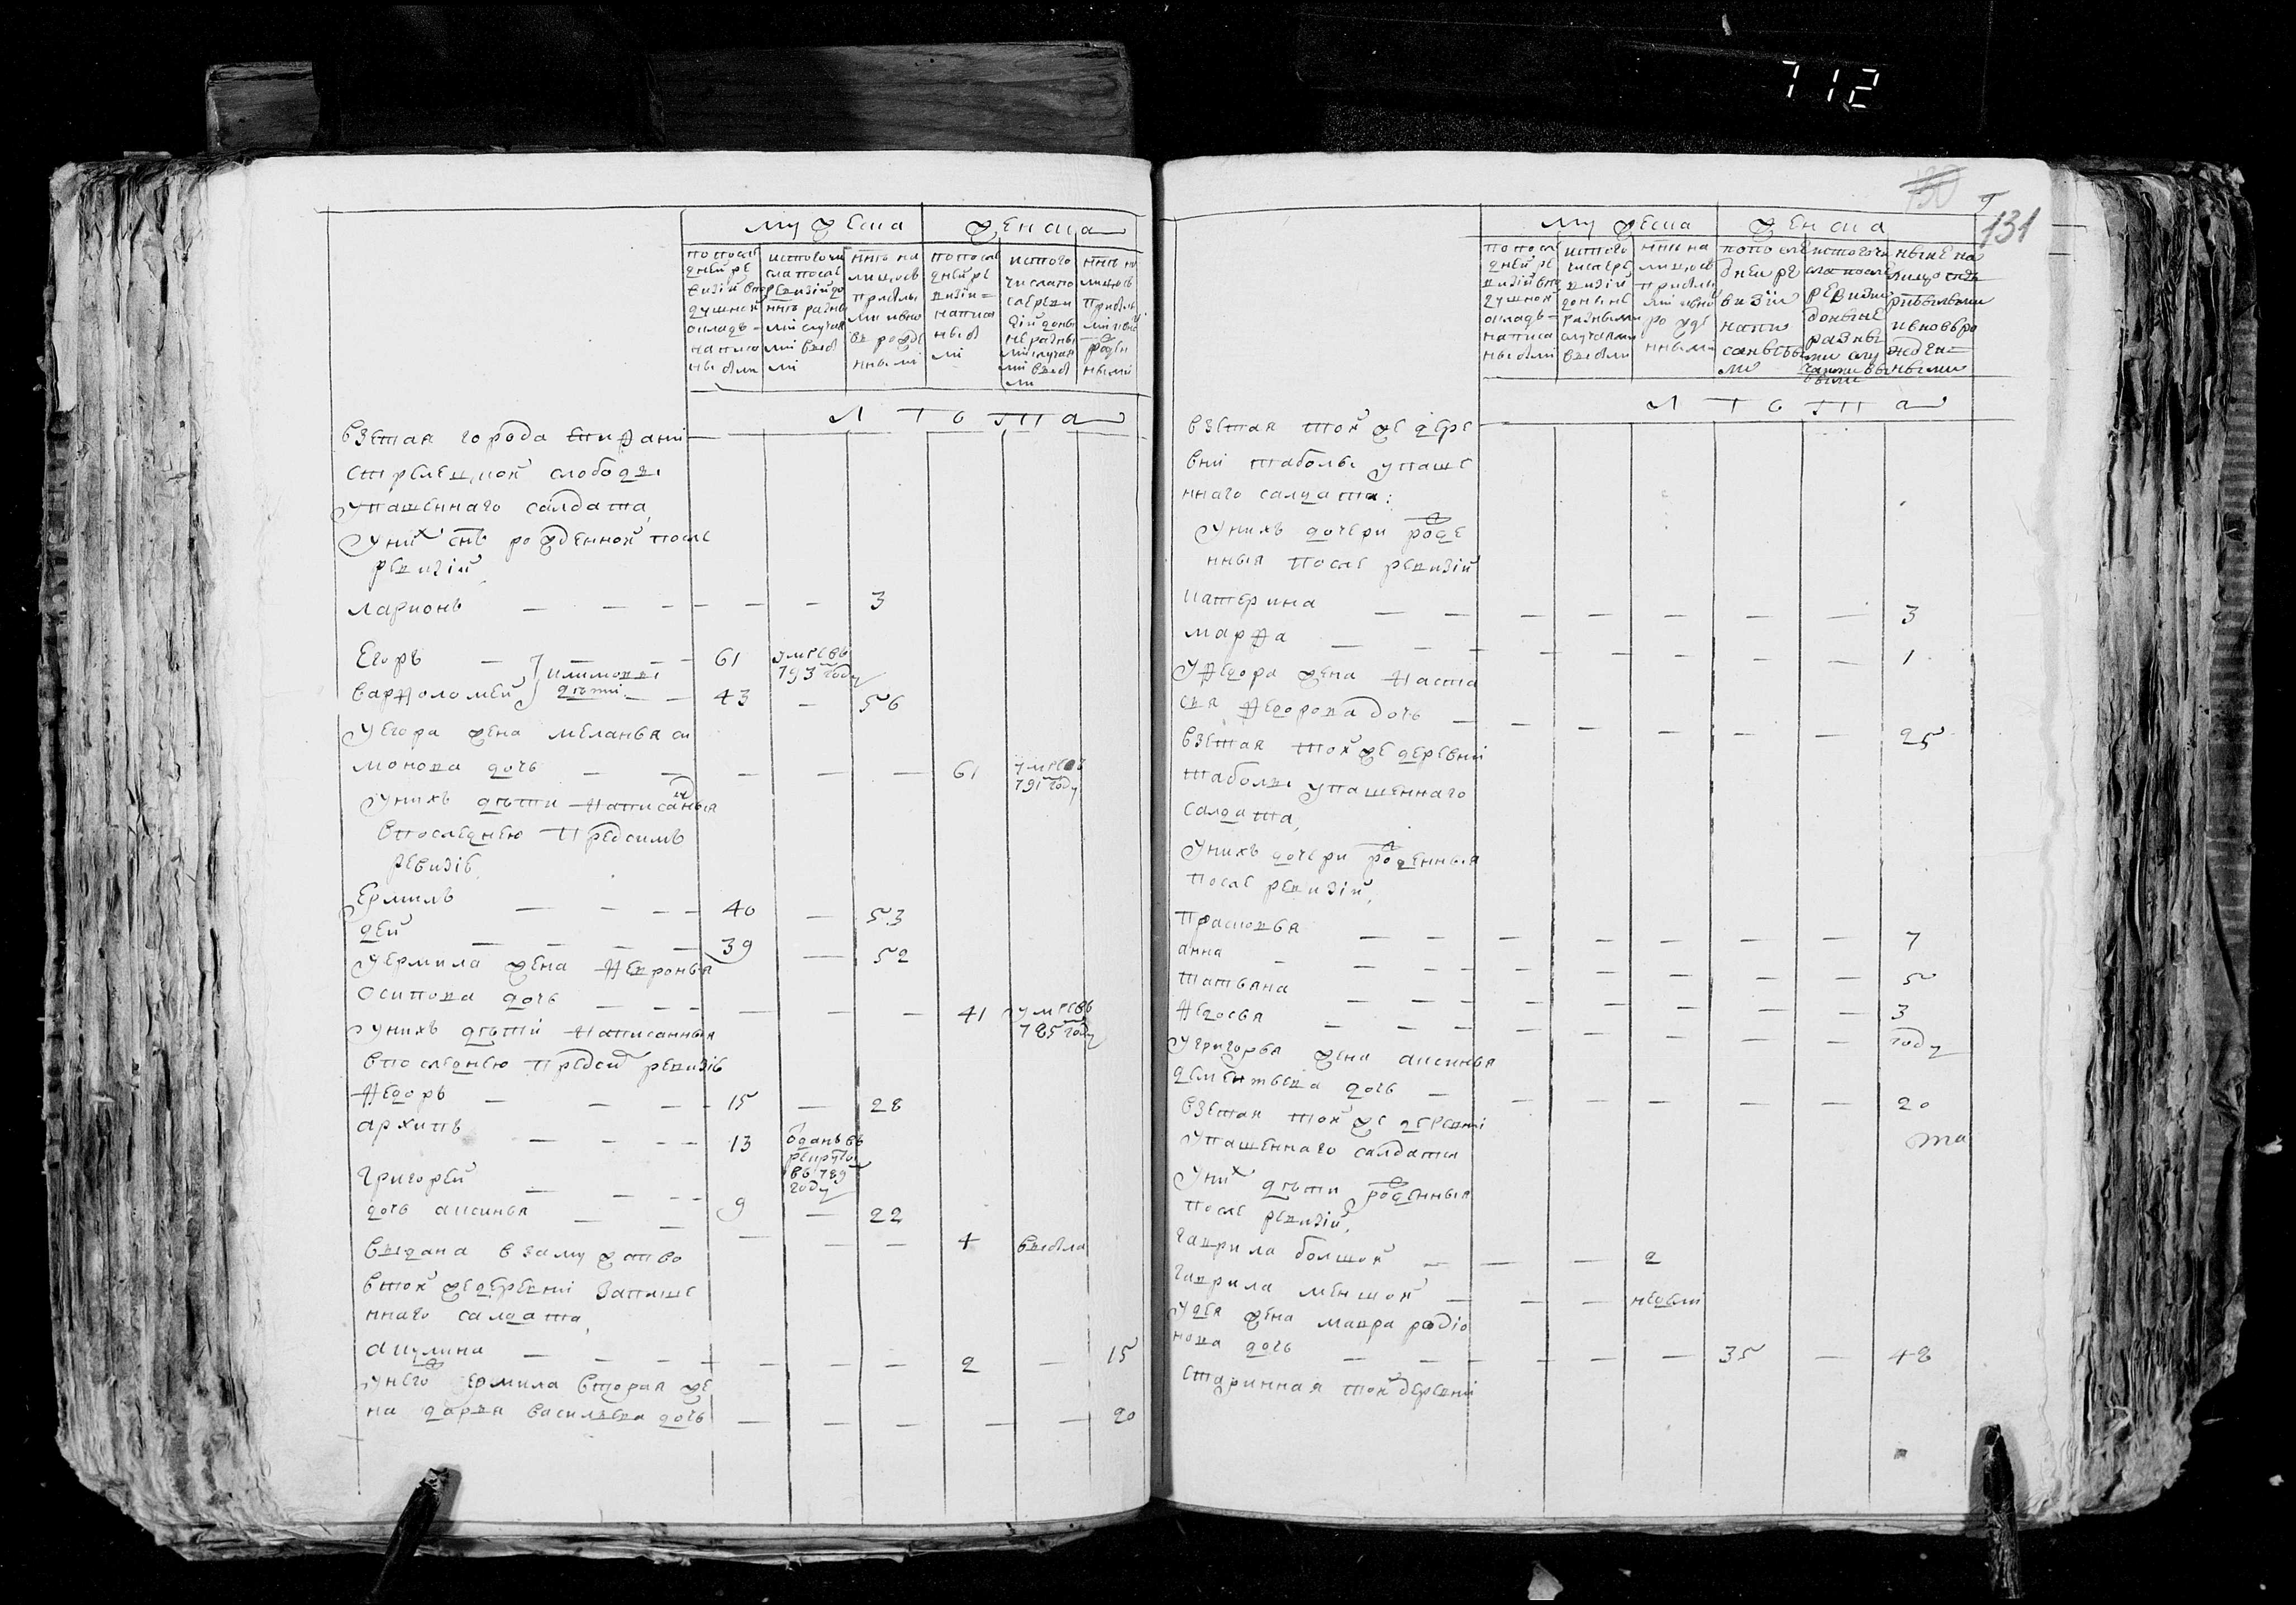 712
130
131
мужеска
женска
по после
дней ре
визии в по
душной
окладъ
написа
ны были
ис того чи
сла после
ревизии до
ннѣ разны
ми случая
ми выбы
ли
ннѣ на
лицо съ
прибылы
ми и вно
вь рожде
нными
по после
дней ре
визии
написа
ны бы
ли
ис того
числа по
сле реви
зии доны
не разны
ми случая
ми выбы
ли
ннѣ на
лицо съ
прибылы
ми и вно
рожден
ными
Л Ѣ Т А
взетая города
стрелецкой слободы
упашенного салдата
у них снъ рожденной после
ревизии
ларионъ 3
Егоръ 61 умре въ
793 году
варфоломей дѣти 43 56
у Егора жена меланья си
монова дочь 61 умре въ
791 году
у нихъ дѣти написаныя
в последнею пред симъ
ревизiю
Ермилъ 40 53
дей 39 52
у Ермила жена февронья
осипова дочь 41 умре въ
785 году
у нихъ дѣти написанныя
в последнею пред сей ревизiю
федоръ 15 28
архипъ 13 оданъ въ
рекруты
въ 789
году
григорей 9 22
дочь аксинья 4 выбыла
выдана в замужство
в той же деревни за паше
нного салдата
акулина 2 15
у него Ермила вторая же
на дарья васильева дочь 20
мужеска
женска
по после
дней ре
визии в по
душной
окладъ
написа
ны были
ис того
числа ре
визии
доныне
разными
случаями
выбыли
ннѣ на
лицо съ
прибылы
ми и вно
рожде
нными
по после
дней ре
визии
напи
саны бы
ли
ис того чи
сла после
ревизии
доныне
разны
ми слу
чаями вы
были
ныне на
лицо съ
прибылыми
и вновь ро
жден
ными
Л Ѣ Т А
взетая той же дере
вни таболы у паше
нного салдата
у нихъ дочери роде
нныя после ревизии
катерина 3
марфа 1
у федора жена наста
сья федорова дочь 25
взетая той же деревни
таболы у пашенного
салдата
у нихъ дочери роженныя
после ревизии
прасковья 7
анна 5
татьяна 3
федосья году
у григорья жена аксинья
дементьева дочь 20
взетая той же деревни
у пашенного салдата
у них дѣти роженныя
после ревизии
гаврила болшой 2
гаврила меншой недели
у дея жена мавра родио
нова дочь 35 48
старинная той деревни